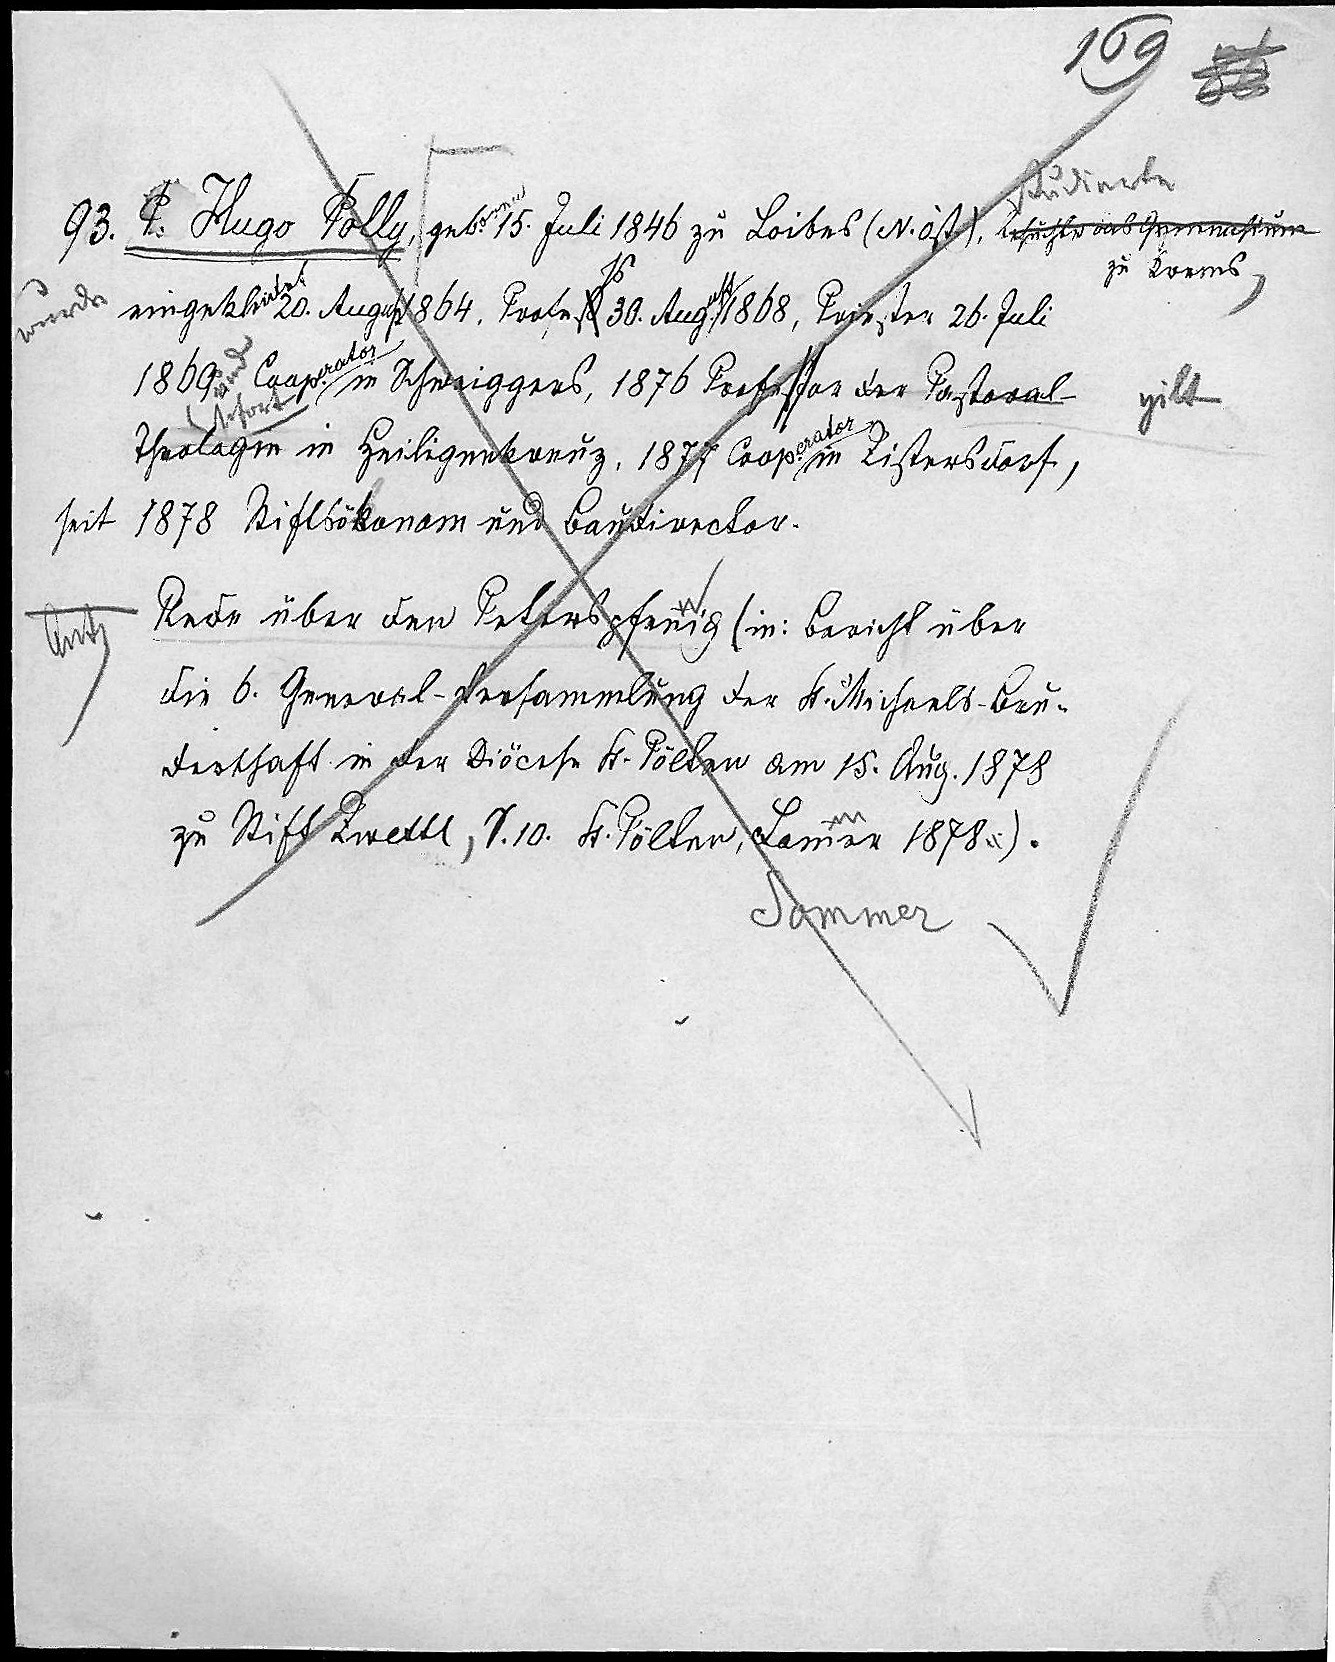 169
studierte
93. P. Hugo Polly, geboren 15. Juli 1846 zu Loibes (N. öst), besuchte das Gymnasium
zu Krems,
wurde eingekleidet 20. August 1864, Profeß 30. August 1868, Priester 26. Juli
1869 und Cooperator in Schweiggers, 1876 Professor der Pastoral- gilt
(Fort
Theologie in Heiligenkreuz, 1877 Cooperator in Zistersdorf,
seit 1878 Stiftsökonom und Baudirector.
Rede über den Peterspfennig (in: Bericht über
die 6. General-Versammlung der St. Michaels-Bru-
derschaft in der Diöcese St. Pölten am 15. Aug. 1878
zu Stift Zwettl, S. 10. St. Pölten, Sommer 1878.).
Sommer